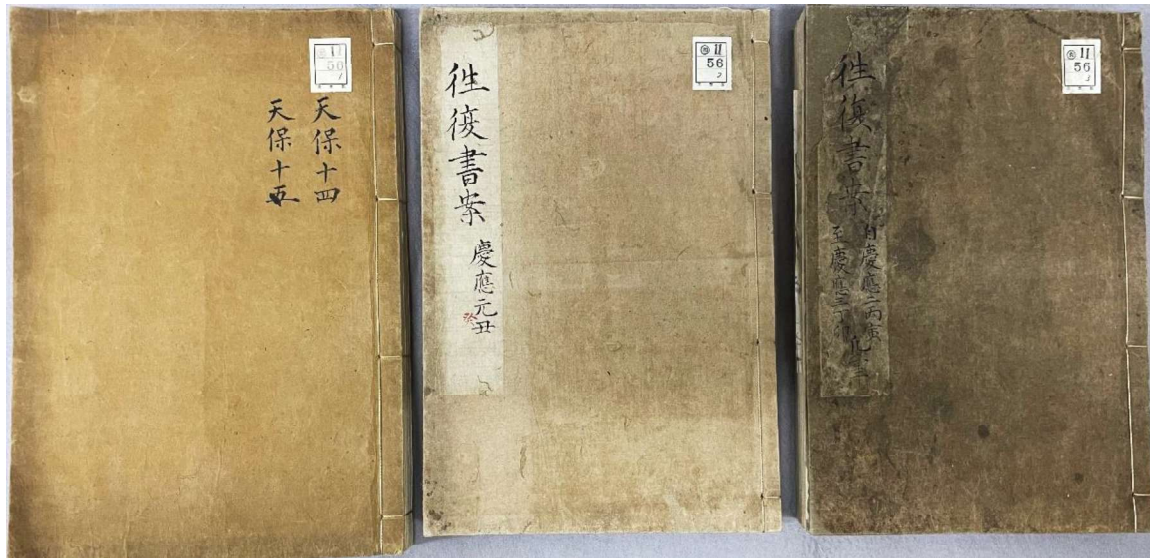 11
56
1
天保十四
天保十五
11
56
2
徃復書案
慶應元丑
11
56
3
徃復書案
自慶應二丙寅
至慶應三丁卯